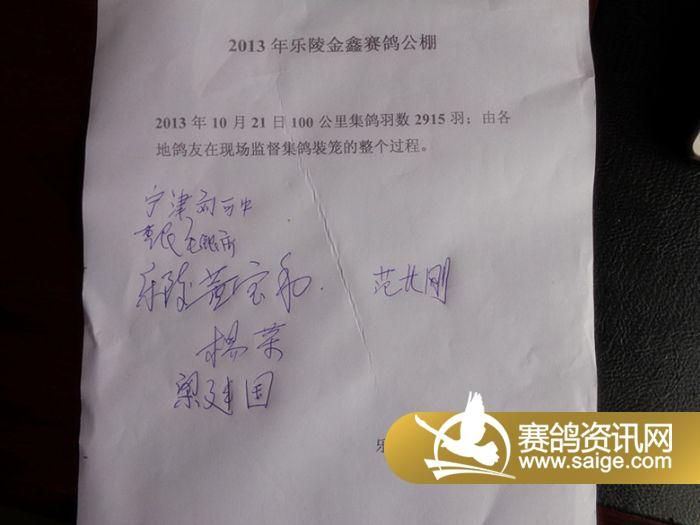 2013 年乐陵金鑫赛鸽公棚
2013 年 10 月 21 日 100 公里集鸽羽数 2915 羽；由各
地鸽友在现场监督集鸽装笼的整个过程。
宁津
乐陵黄宝和
范长刚
杨荣
梁建国
乐
赛鸽资讯网
www.saige.com